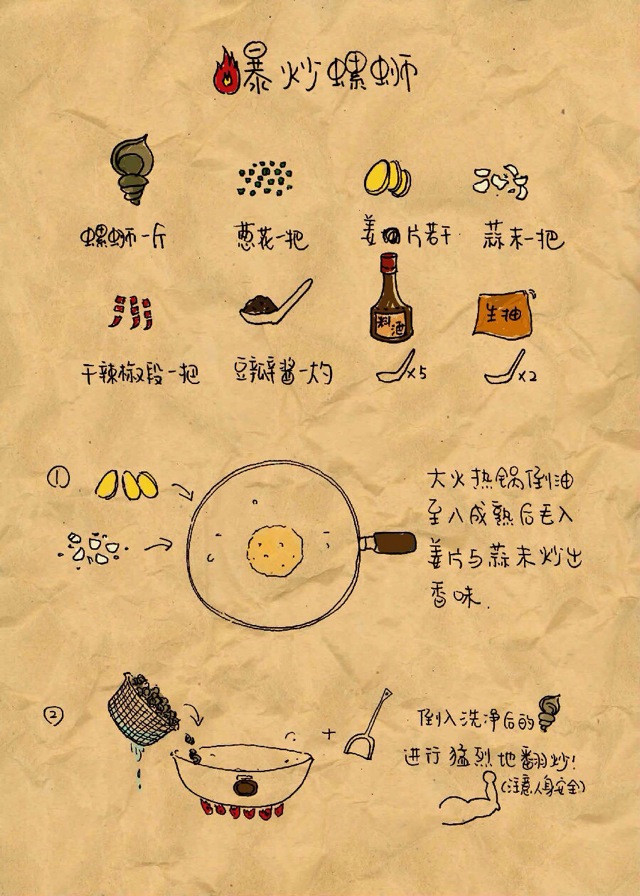 爆炒螺蛳
螺蛳一斤
葱花一把
姜片若干
蒜末一把
料酒
生抽
干辣椒段一把
豆瓣酱一灼
x5
x2
①
大火热锅倒油
至八成熟后丢入
姜片与蒜末炒出
香味.
②
+
倒入洗净后的
进行猛烈地翻炒!
(注意人身安全)